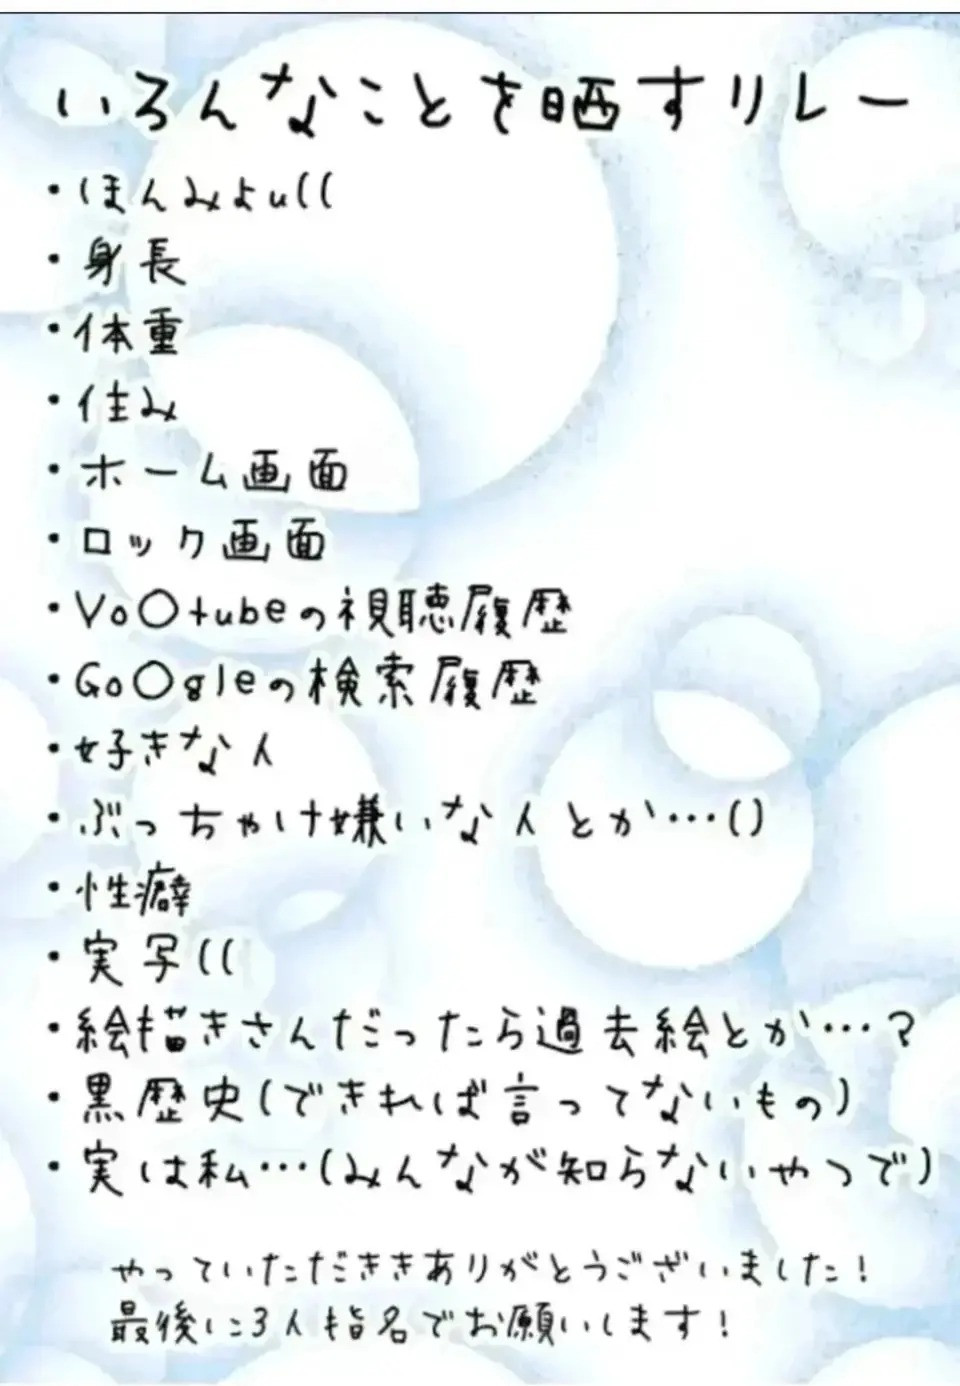 いろんなことを晒すリレー
・ほんみょu((
・身長
・体重
・住み
・ホーム画面
・ロック画面
・Yo○tubeの視聴履歴
・Go○gleの検索履歴
・好きな人
・ぶっちゃけ嫌いな人とか…()
・性癖
・実写((
・絵描きさんだったら過去絵とか…?
・黒歴史(できれば言ってないもの)
・実は私…(みんなが知らないやつで)
やっていただききありがとうございました!
最後に3人指名でお願いします!